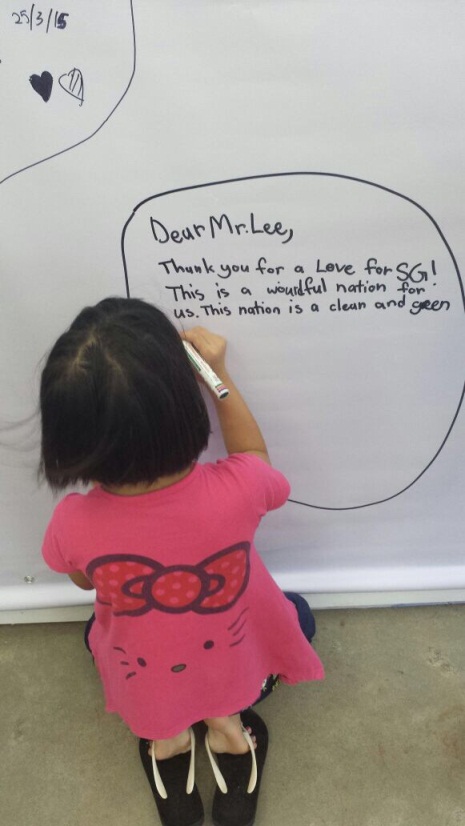 25/3/15
Dear Mr. Lee,
Thank you for a Love for SG!
This is a wourdful nation for
us. This nation is a clean and green